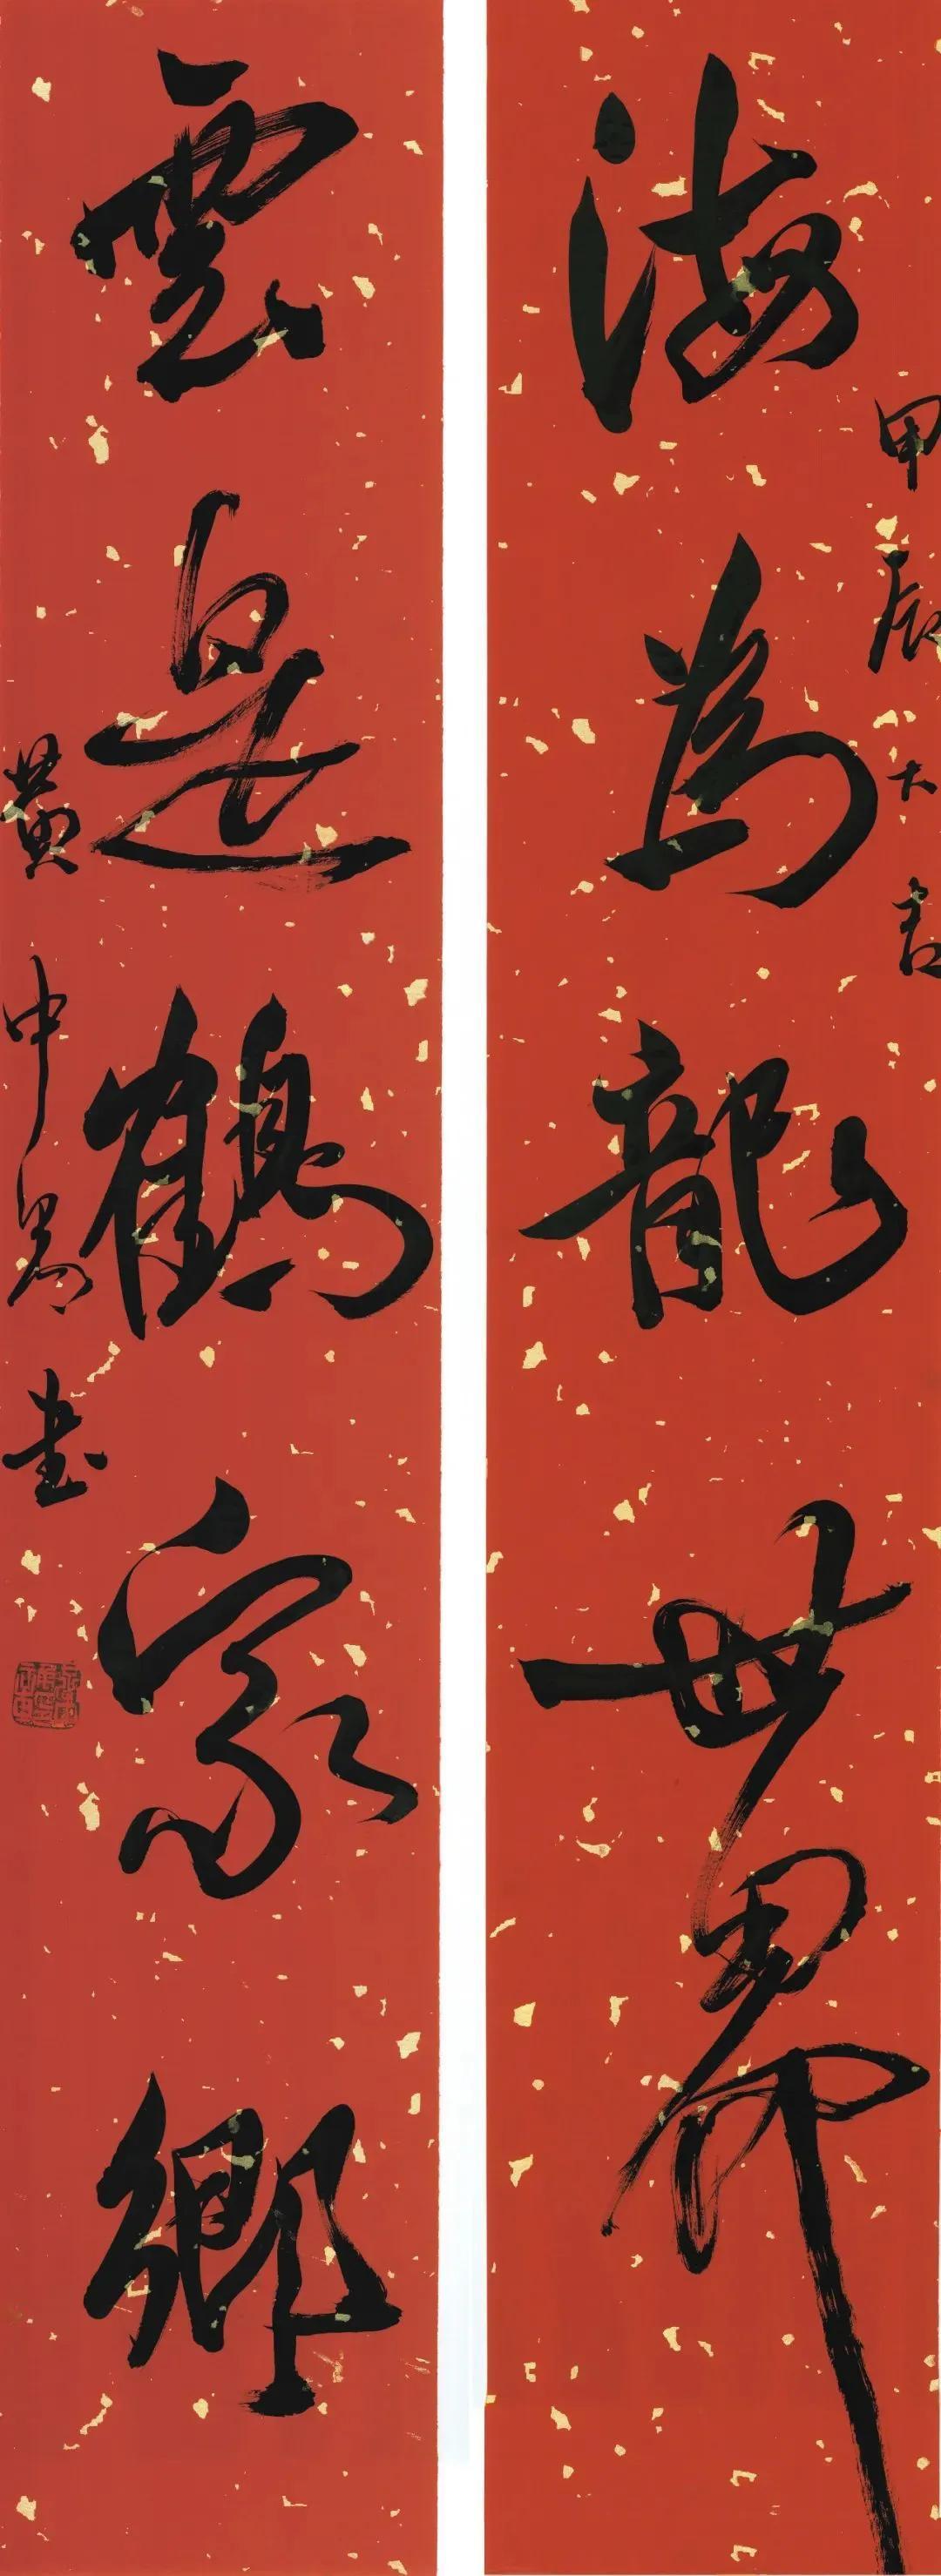 甲辰大吉
海為龍世界
雲是鶴家鄉
黃中
書